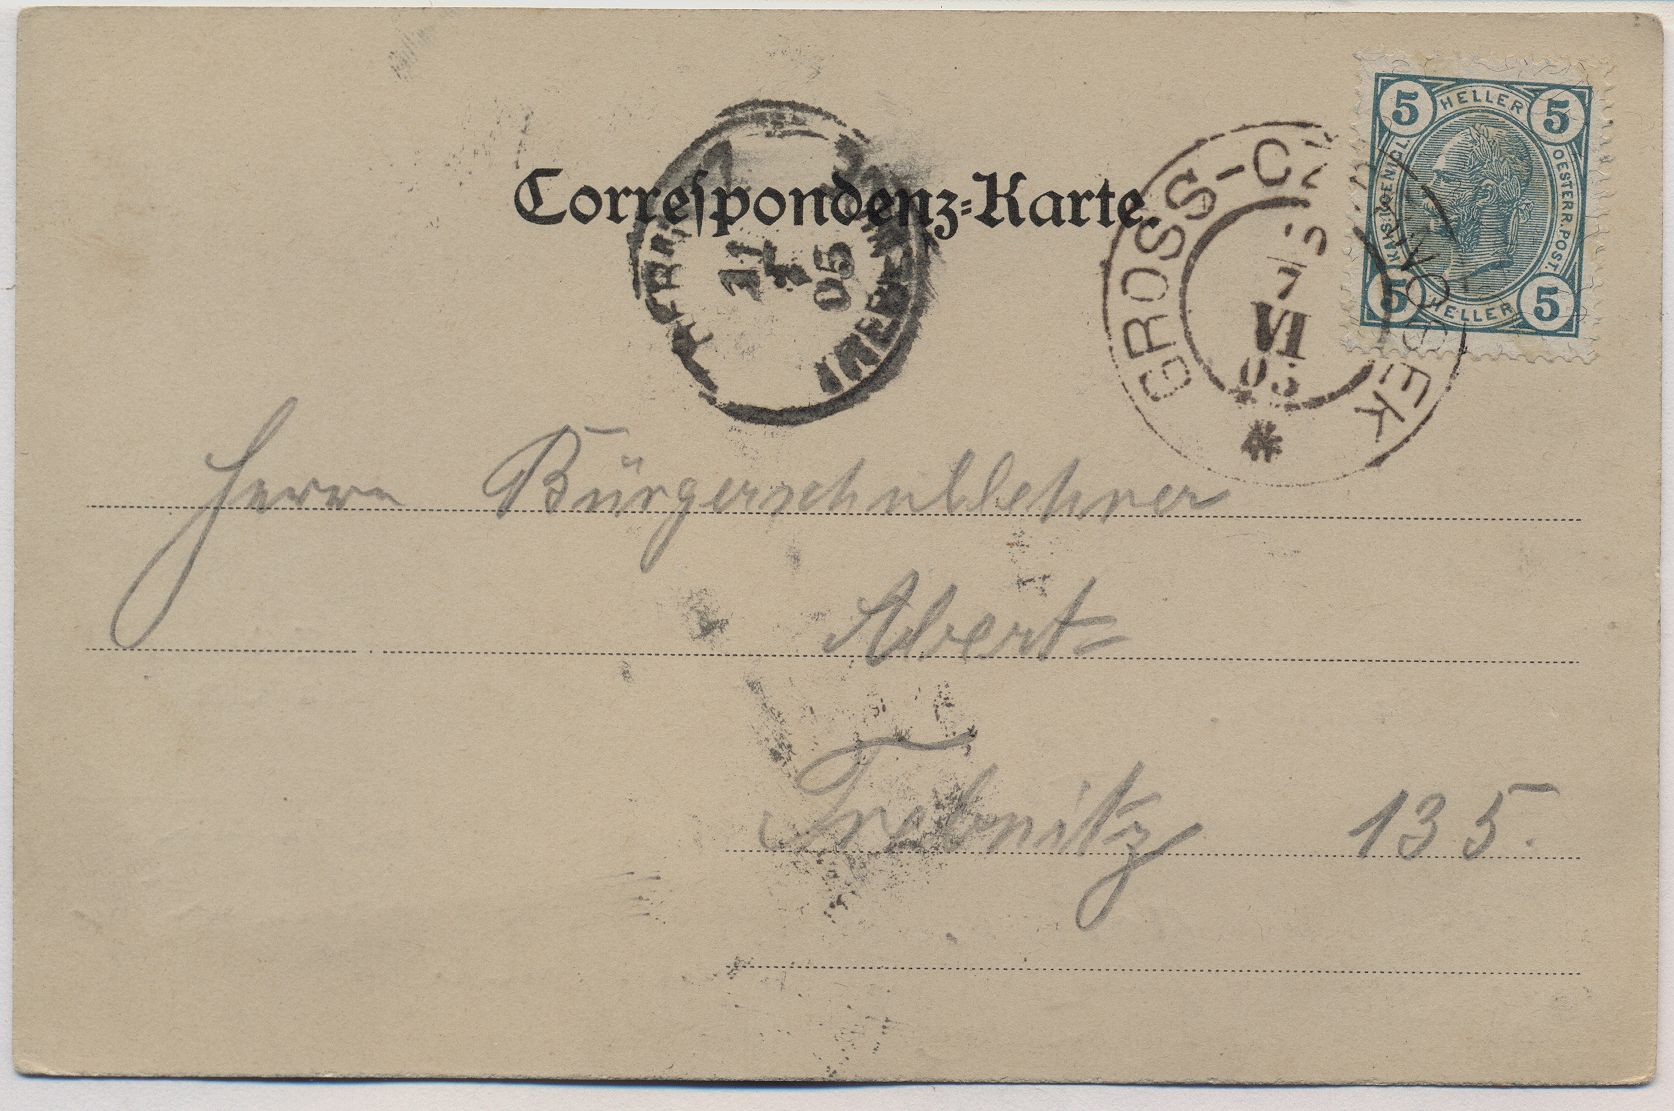 Correspondenz-Karte.
5 HELLER 5
KAIS. KÖENIGL. OESTERR. POST.
5 HELLER 5
GROSS-
7
VI
05
11
05
Herrn Bürgerschullehrer
Abert
Trebnitz 135.